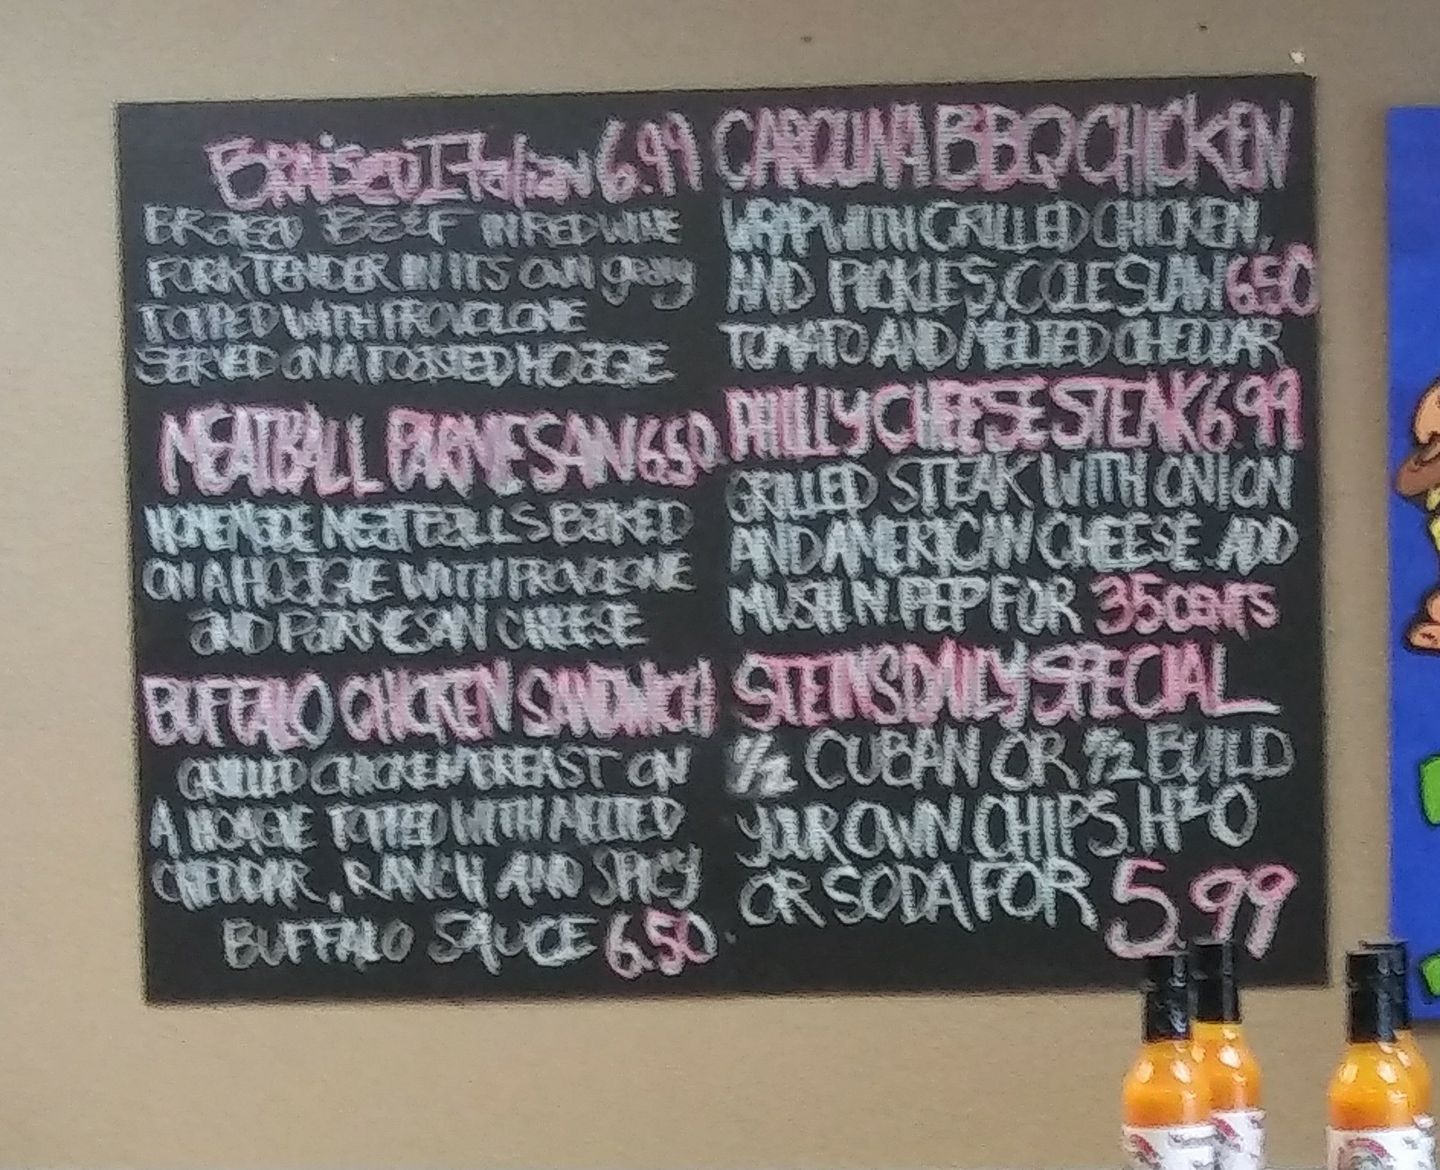 Braised Italian 6.99
BRaiSED BEEF IN RED WINE
PORK TENDER IN ITS OWN gravy
TOPPED WITH PROVOLONE
SERVED ON A TOASTED HOAGIE
MEATBALL PARMESAN 6.50
HOMEMADE MEATBALLS BAKED
ON A HOAGIE WITH PROVOLONE
aND PaRMESAN CHEESE
BUFFALO CHICKEN SANDWICH
GRILLED CHICKEN BREAST ON
A HOAGIE TOPPED WITH MELTED
CHEDDAR, RANCH AND SPICY
BUFFALO SAUCE 6.50
CAROLINA BBQ CHICKEN
WRAP WITH GRILLED CHICKEN,
AND PICKLES, COLESLAW 6.50
TOMATO AND MELTED CHEDDAR
PHILLY CHEESE STEAK 6.99
GRILLED STEAK WITH ONION
AND AMERICAN CHEESE. ADD
MUSH N PEP FOR 35 CENTS
STEINS DAILY SPECIAL
1/2 CUBAN OR 1/2 BUILD
YOUR OWN CHIPS. H2O
OR SODA FOR 5.99